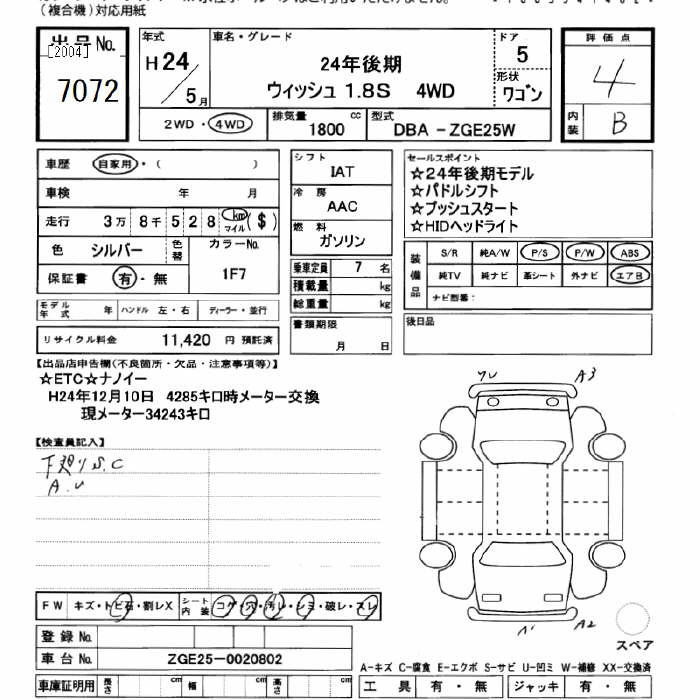 (複合機)対応用紙
出品No.
[2004]
7072
年式
H24/5月
車名・グレード
24年後期
ウィッシュ 1.8S 4WD
ドア
5
形状
ワゴン
評価点
4
内装
B
2WD・4WD
排気量
1800 cc
型式
DBA-ZGE25W
車歴 自家用・( )
車検 年 月
走行 3万8千528 km マイル ($)
色 シルバー 色替 カラーNo.
保証書 有・無 1F7
モデル年式 年 ハンドル 左・右 ディーラー・並行
リサイクル料金 11,420 円 預託済
シフト
IAT
冷房
AAC
燃料
ガソリン
乗車定員 7 名
積載量 kg
総重量 kg
書類期限
月 日
セールスポイント
☆24年後期モデル
☆パドルシフト
☆プッシュスタート
☆HIDヘッドライト
装備品
S/R 純A/W P/S P/W ABS
純TV 純ナビ 革シート 外ナビ エアB
ナビ型番:
後日品
【出品店申告欄(不良箇所・欠品・注意事項等)】
☆ETC☆ナノイー
H24年12月10日 4285キロ時メーター交換
現メーター34243キロ
【検査員記入】
下廻りS.C
A.U
A3
A1
A2
スペア
FW キズ・トビ石・割レX シート内装 コゲ・穴・汚レ・シミ・破レ・スレ
登録No.
車台No. ZGE25-0020802
車庫証明用 長さ cm 幅 cm 高さ cm
A-キズ C-腐食 E-エクボ S-サビ U-凹ミ W-補修 XX-交換済
工具 有・無 ジャッキ 有・無